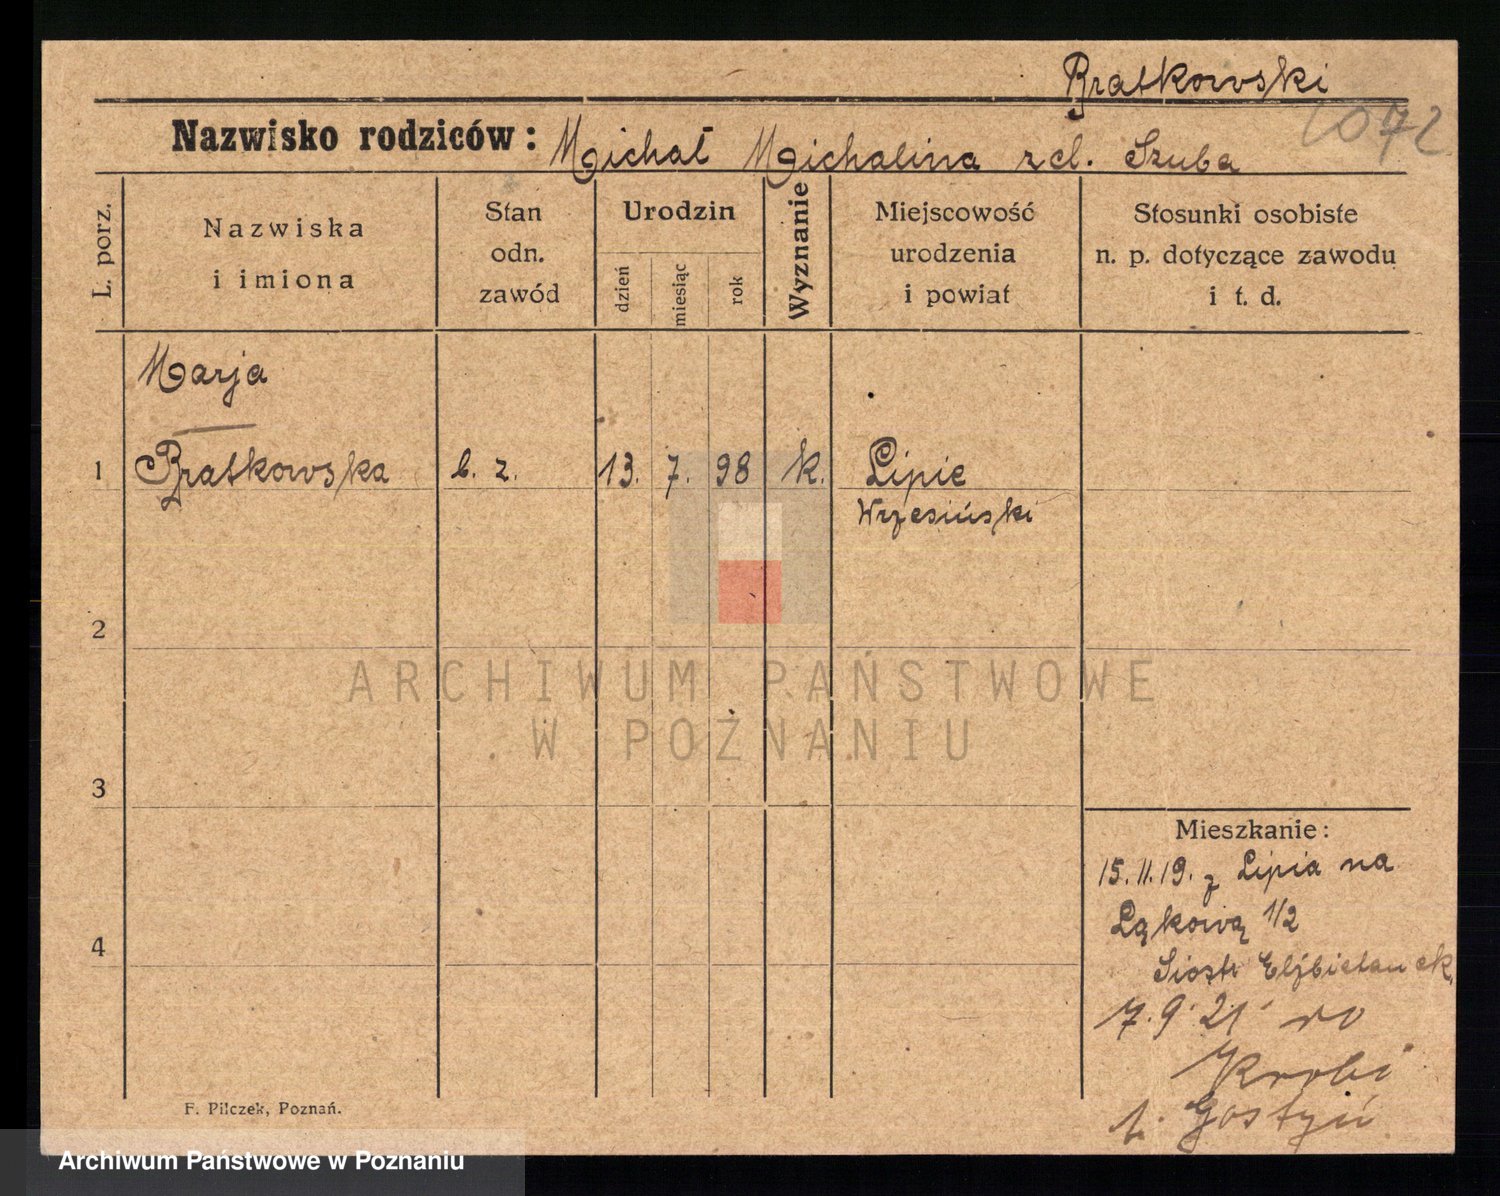 Bratkowski
1072
Nazwisko rodziców: Michał Michalina zd. Szuba
L. porz.
Nazwiska i imiona
Stan odn. zawód
Urodzin
dzień
miesiąc
rok
Wyznanie
Miejscowość urodzenia i powiat
Stosunki osobiste n. p. dotyczące zawodu i t. d.
Marja
1 Bratkowska b. z. 13. 7. 98 k. Lipie
Wrzesiński
2
3
4
ARCHIWUM PAŃSTWOWE
W POZNANIU
Mieszkanie:
15.11.19. z Lipia na
Łąkową 1/2
Siostr Elżbietanek
7.9.21 do
Krobi
p. Gostyń
F. Pilczek, Poznań.
Archiwum Państwowe w Poznaniu